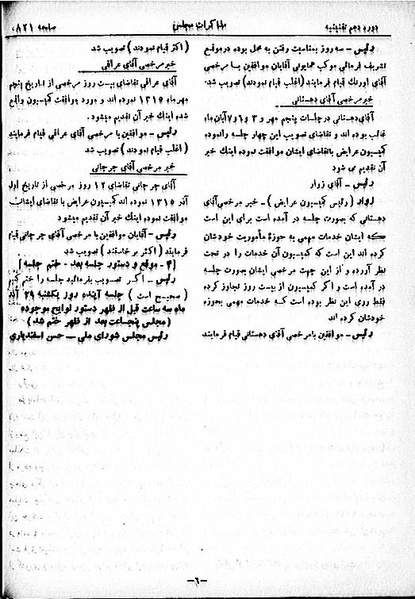 دوره دهم تقنینیه
مذاکرات مجلس
صفحه ۸۲۱
رئیس – سه روز بمناسبت رفتن به محل بوده در موقع
تشریف فرمائی موکب همایونی آقایان موافقین با مرخصی
آقای اورنک قیام فرمایند (اغلب قیام نمودند) تصویب شد
خبر مرخصی آقای دهستانی
آقای دهستانی در جلسات پنجم مهر و ۳ و ۶ و ۷ آبان ماه
غائب بوده اند و تقاضای تصویب این چهار جلسه را نموده
کمیسیون عرایض با تقاضای ایشان موافقت نموده اینک خبر
آن تقدیم می شود
رئیس – آقای زوار
زوار (رئیس کمیسیون عرایض) – خبر مرخصی آقای
دهستانی که بصورت جلسه در آمده است برای این است
که ایشان خدمات مهمی به حوزه مأموریت خودشان
کرده اند این است که کمیسیون آن خدمات را در تحت
نظر آورده و از این جهت مرخصی ایشان بصورت جلسه
در آمده است و اگر کمیسیون از بیست روز تجاوز کرده
فقط روی این نظر بوده است که خدمات مهمی بحوزه
خودشان کرده اند
رئیس – موافقین با مرخصی آقای دهستانی قیام فرمایند
(اکثر قیام نمودند) تصویب شد
خبر مرخصی آقای عراقی
آقای عراقی تقاضای بیست روز مرخصی از تاریخ پنجم
مهر ماه ۱۳۱۵ نموده اند و مورد موافقت کمیسیون واقع
شده اینک خبر آن تقدیم میشود.
رئیس – موافقین با مرخصی آقای عراقی قیام فرمایند
(اغلب قیام نمودند) تصویب شد
خبر مرخصی آقای جرجانی
آقای جرجانی تقاضای ۱۲ روز مرخصی از تاریخ اول
آذر ۱۳۱۵ نموده اند کمیسیون عرایض با تقاضای ایشان
موافقت نموده اینک خبر آن تقدیم میشود
رئیس – آقایان موافقین با مرخصی آقای جرجانی قیام
فرمایند (اکثر برخاستند) تصویب شد
[۴ – موقع و دستور جلسه بعد – ختم جلسه]
رئیس – اگر تصویب بفرمائید جلسه را ختم کنیم
(صحیح است) جلسه آینده روز یکشنبه ۲۹ آذر
ماه سه ساعت قبل از ظهر دستور لوایح موجوده
(مجلس پنجساعت بعد از ظهر ختم شد)
رئیس مجلس شورای ملی – حسن اسفندیاری
–۶–